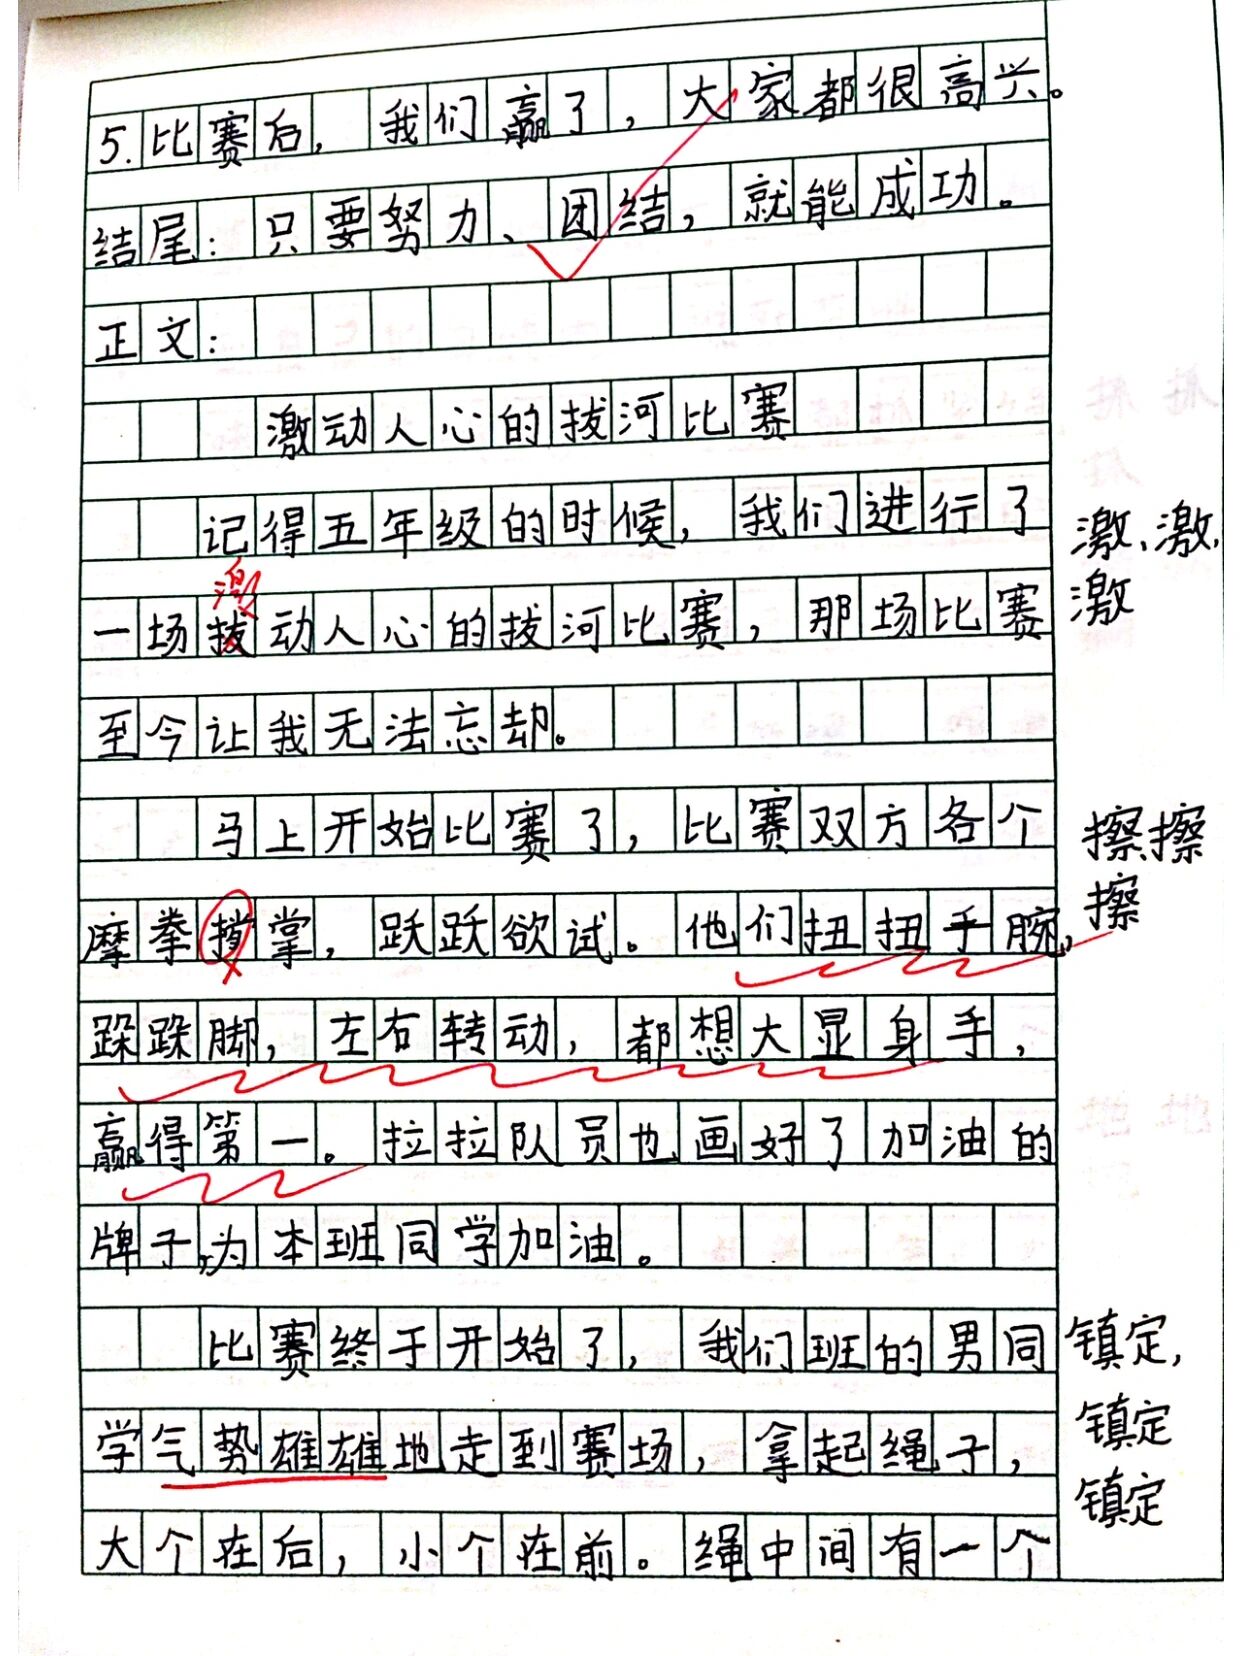 5.比赛后,我们赢了,大家都很高兴。
结尾:只要努力、团结,就能成功。
正文:
激动人心的拔河比赛
记得五年级的时候,我们进行了
激
一场拔动人心的拔河比赛,那场比赛
激、激、
激
至今让我无法忘却。
马上开始比赛了,比赛双方各个
摩拳掌,跃跃欲试。他们扭扭手腕,
擦擦
擦
跺跺脚,左右转动,都想大显身手,
赢得第一。拉拉队员也画好了加油的
牌子,为本班同学加油。
比赛终于开始了,我们班的男同
镇定,
学气势雄雄地走到赛场,拿起绳子,
镇定
镇定
大个在后,小个在前。绳中间有一个